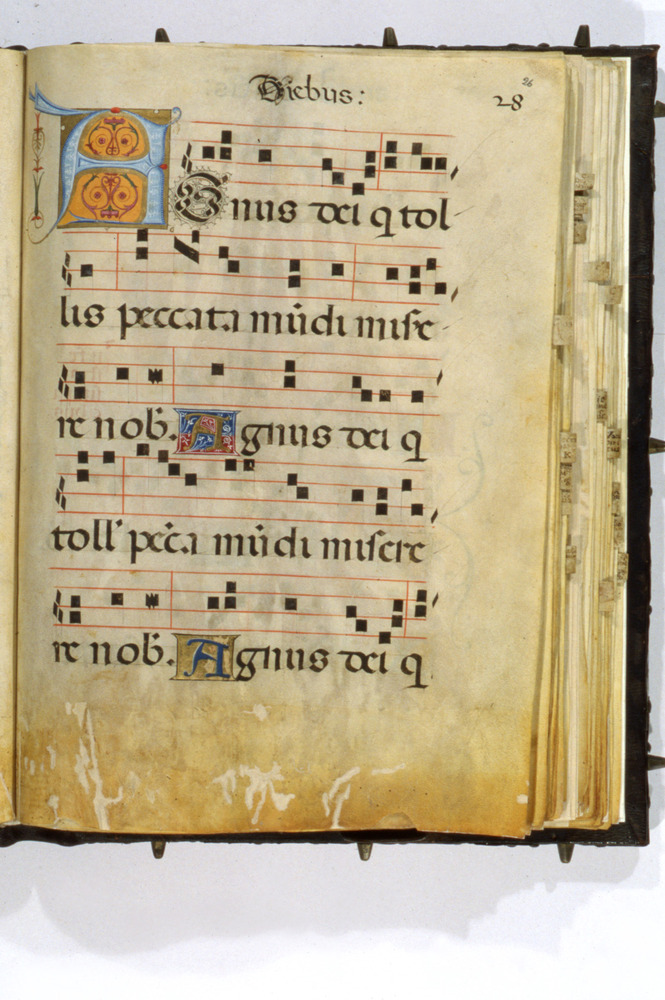 Diebus:
26
28
AGnus dei q tol
lis peccata mūdi mise
re nob̄. Agnus dei q
toll' pec̄a mūdi misere
re nob̄. Agnus dei q